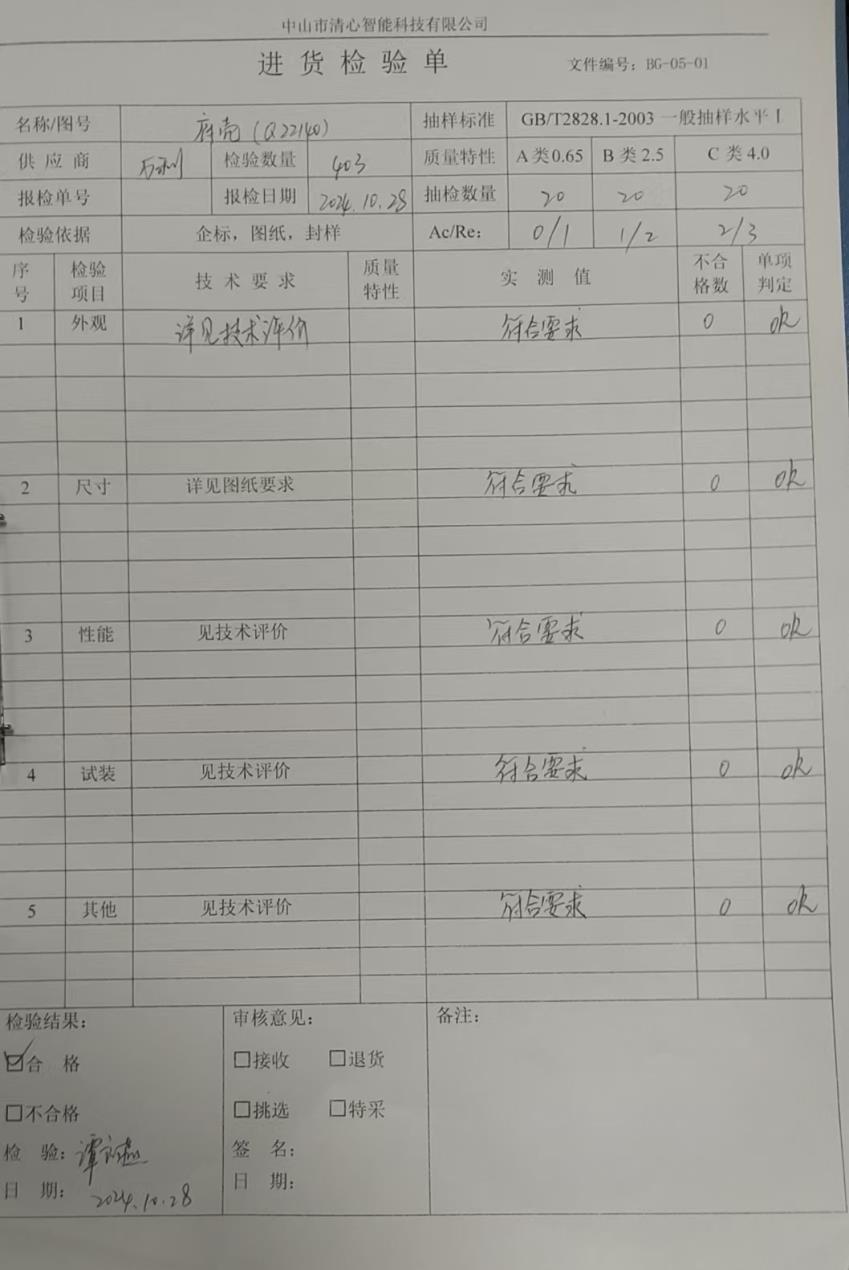 中山市清心智能科技有限公司
进货检验单
文件编号：BG-05-01
名称/图号 底壳（Q22140） 抽样标准 GB/T2828.1-2003 一般抽样水平 I
供应商 检验数量 403 质量特性 A 类 0.65 B 类 2.5 C 类 4.0
报检单号 报检日期 2024.10.28 抽检数量 20 20 20
检验依据 企标，图纸，封样 Ac/Re： 0/1 1/2 2/3
序号 检验项目 技术要求 质量特性 实测值 不合格数 单项判定
1 外观 详见技术评价 符合要求 0 ok
2 尺寸 详见图纸要求 符合要求 0 ok
3 性能 见技术评价 符合要求 0 ok
4 试装 见技术评价 符合要求 0 ok
5 其他 见技术评价 符合要求 0 ok
检验结果： 审核意见： 备注：
合格 接收 退货
不合格 挑选 特采
检验：谭 签名：
日期：2024.10.28 日期：